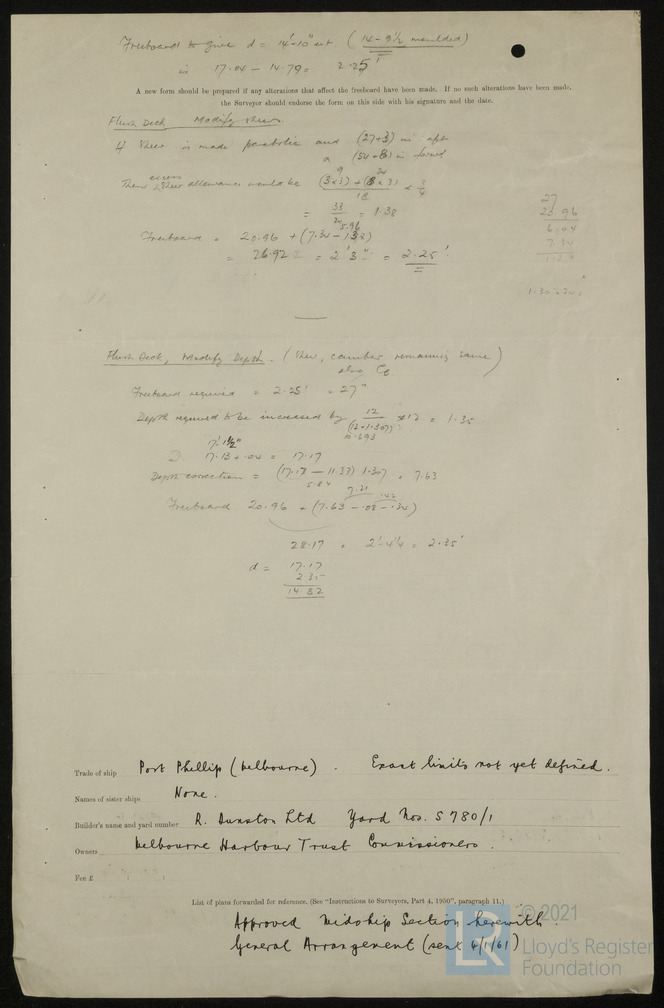 Freeboard to give d = 14'-10" ext (14-9½ moulded)
is 17.04 - 14.79 = 2.25'
A new form should be prepared if any alterations that affect the freeboard have been made. If no such alterations have been made,
the Surveyor should endorse the form on this side with his signature and the date.
Flush Deck Modify sheer.
If sheer is made parabolic and (27+3) in aft
(54+8) in forwd
Then excess sheer allowance would be
= 33/24 = 1.38
Freeboard = 20.96 + (7.34 - 1.38)
5.96
= 26.92 = 2' 3" = 2.25'
27
20.96
6.04
7.34
1.30
Flush Deck, Modify Depth. (Sheer, camber remaining same)
also Cb
Freeboard required = 2.25' = 27"
Depth required to be increased by 12/(12+1.307) = 1.35
17'-1½"
D. 17.13 + .04 = 17.17
Depth correction = (17.17 - 11.33) 1.307 = 7.63
5.84
7.21 .42
Freeboard 20.96 + (7.63 - .08 - .34)
28.17 = 2'-4¼ = 2.35'
d = 17.17
2.35
14.82
Trade of ship Port Phillip (Melbourne). Exact limits not yet defined.
Names of sister ships None.
Builder's name and yard number R. Dunston Ltd Yard Nos. S 780/1
Owners Melbourne Harbour Trust Commissioners.
Fee £
List of plans forwarded for reference. (See "Instructions to Surveyors, Part 4, 1950", paragraph 11.)
Approved Midship Section herewith.
General Arrangement (sent 6/1/61)
LR © 2021
Lloyd's Register
Foundation